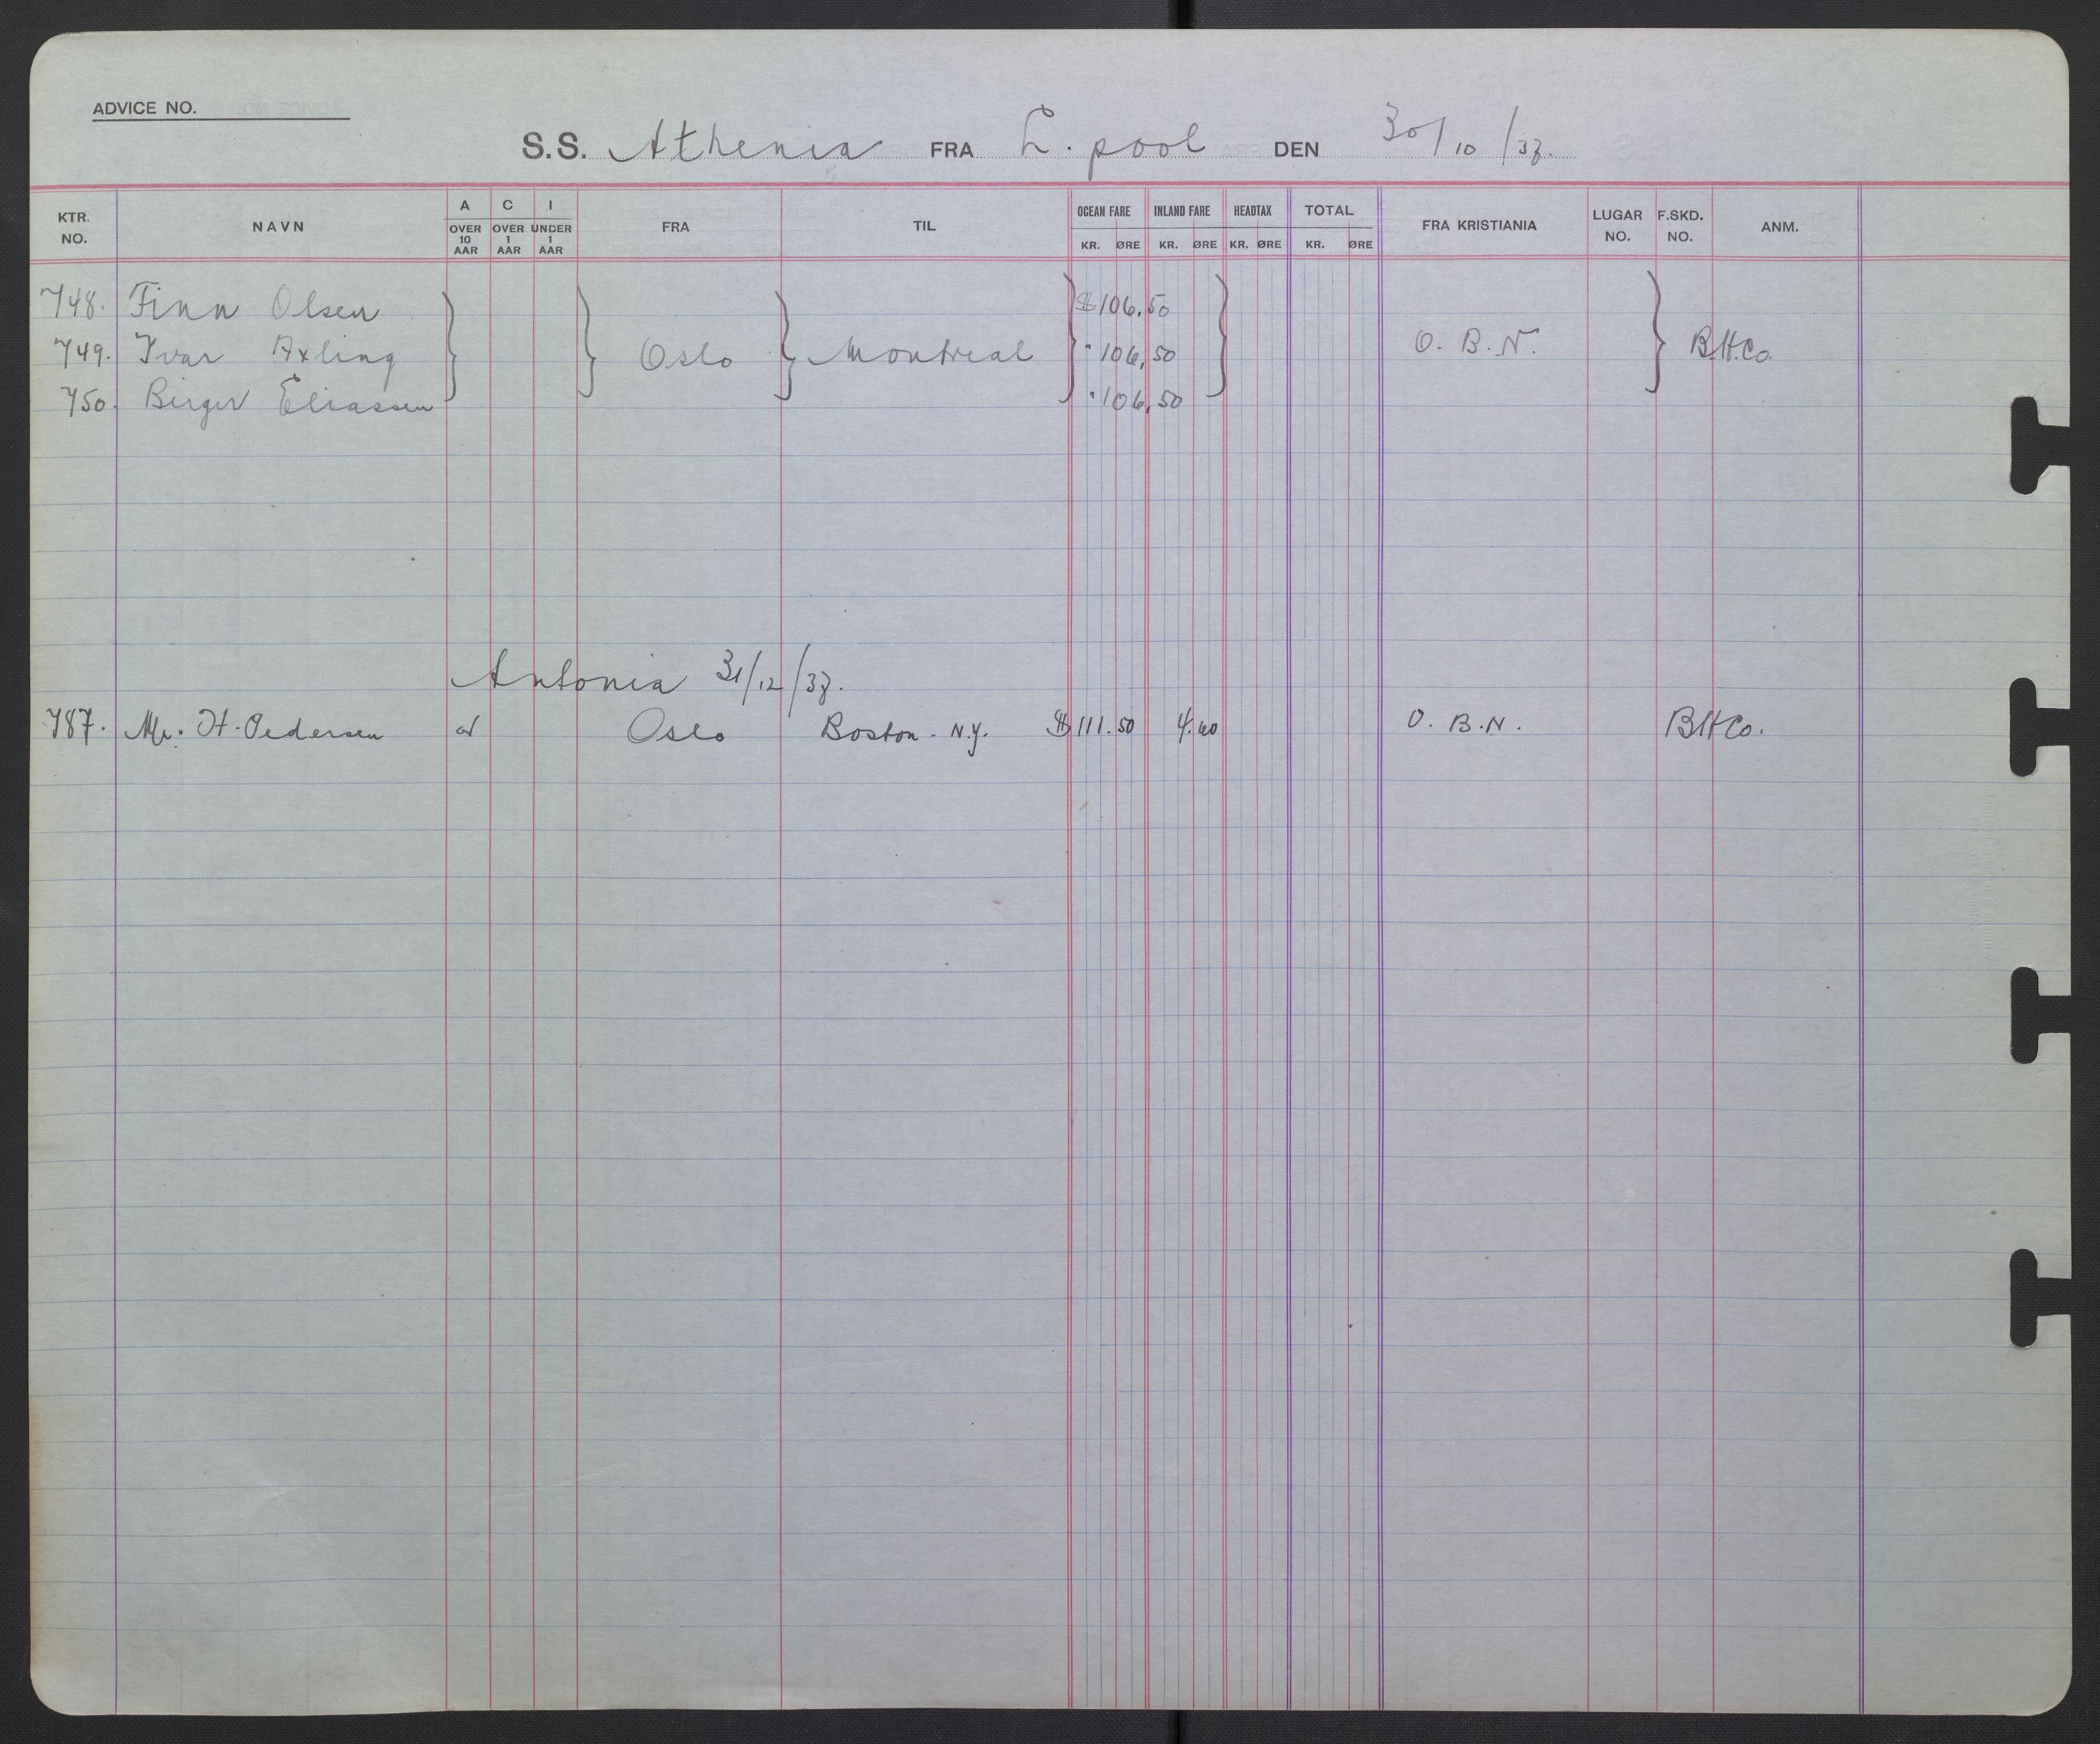 ADVICE NO.
S.S. Athenia FRA L. pool DEN 30/10/37.
KTR. NO. NAVN A OVER 10 AAR C OVER 1 AAR I UNDER 1 AAR FRA TIL OCEAN FARE KR. ØRE INLAND FARE KR. ØRE HEADTAX KR. ØRE TOTAL KR. ØRE FRA KRISTIANIA LUGAR NO. F.SKD. NO. ANM.
748. Finn Olsen $106.50
749. Ivar Axling Oslo Montreal " 106,50 O. B. N. B.H.Co.
750. Birger Eliassen " 106,50
Antonia 31/12/37.
787. Mr. H. Pedersen Oslo Boston - N.Y. $111.50 4.60 O. B. N. BHCo.